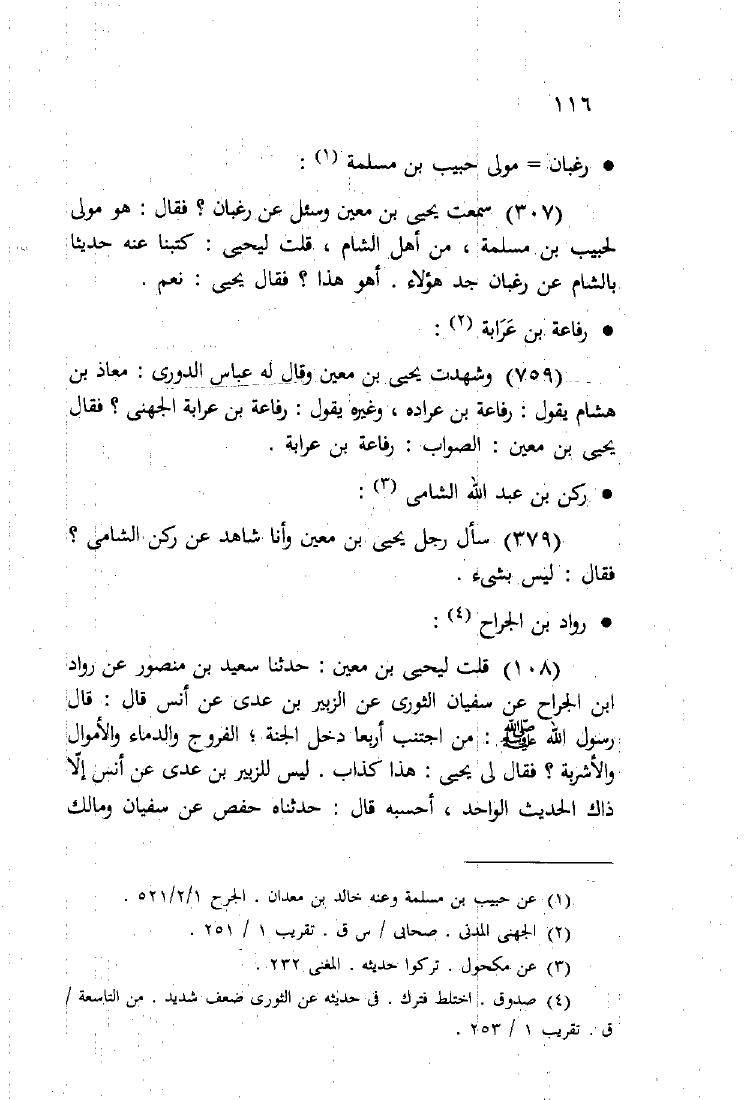 ١١٦
● رغبان = مولى حبيب بن مسلمة (١) :
(٣٠٧) سمعت يحيى بن معين وسئل عن رغبان ؟ فقال : هو مولى
لحبيب بن مسلمة ، من أهل الشام ، قلت ليحيى : كتبنا عنه حديثا
بالشام عن رغبان جد هؤلاء . أهو هذا ؟ فقال يحيى : نعم .
● رفاعة بن عَرَابة (٢) :
(٧٥٩) وشهدت يحيى بن معين وقال له عباس الدورى : معاذ بن
هشام يقول : رفاعة بن عراده ، وغيره يقول : رفاعة بن عرابة الجهنى ؟ فقال
يحيى بن معين : الصواب : رفاعة بن عرابة .
● ركن بن عبد الله الشامى (٣) :
(٣٧٩) سأل رجل يحيى بن معين وأنا شاهد عن ركن الشامى ؟
فقال : ليس بشىء .
● رواد بن الجراح (٤) :
(١٠٨) قلت ليحيى بن معين : حدثنا سعيد بن منصور عن رواد
ابن الجراح عن سفيان الثورى عن الزبير بن عدى عن أنس قال : قال
رسول الله ﷺ : من اجتنب أربعا دخل الجنة ؛ الفروج والدماء والأموال
والأشربة ؟ فقال لى يحيى : هذا كذاب . ليس للزبير بن عدى عن أنس إلّا
ذاك الحديث الواحد ، أحسبه قال : حدثناه حفص عن سفيان ومالك
(١) عن حبيب بن مسلمة وعنه خالد بن معدان . الجرح ٥٢١/٢/١ .
(٢) الجهنى المدنى . صحابى / س ق . تقريب ١ / ٢٥١ .
(٣) عن مكحول . تركوا حديثه . المغنى ٢٣٢ .
(٤) صدوق . اختلط فترك . فى حديثه عن الثورى ضعف شديد . من التاسعة /
ق . تقريب ١ / ٢٥٣ .